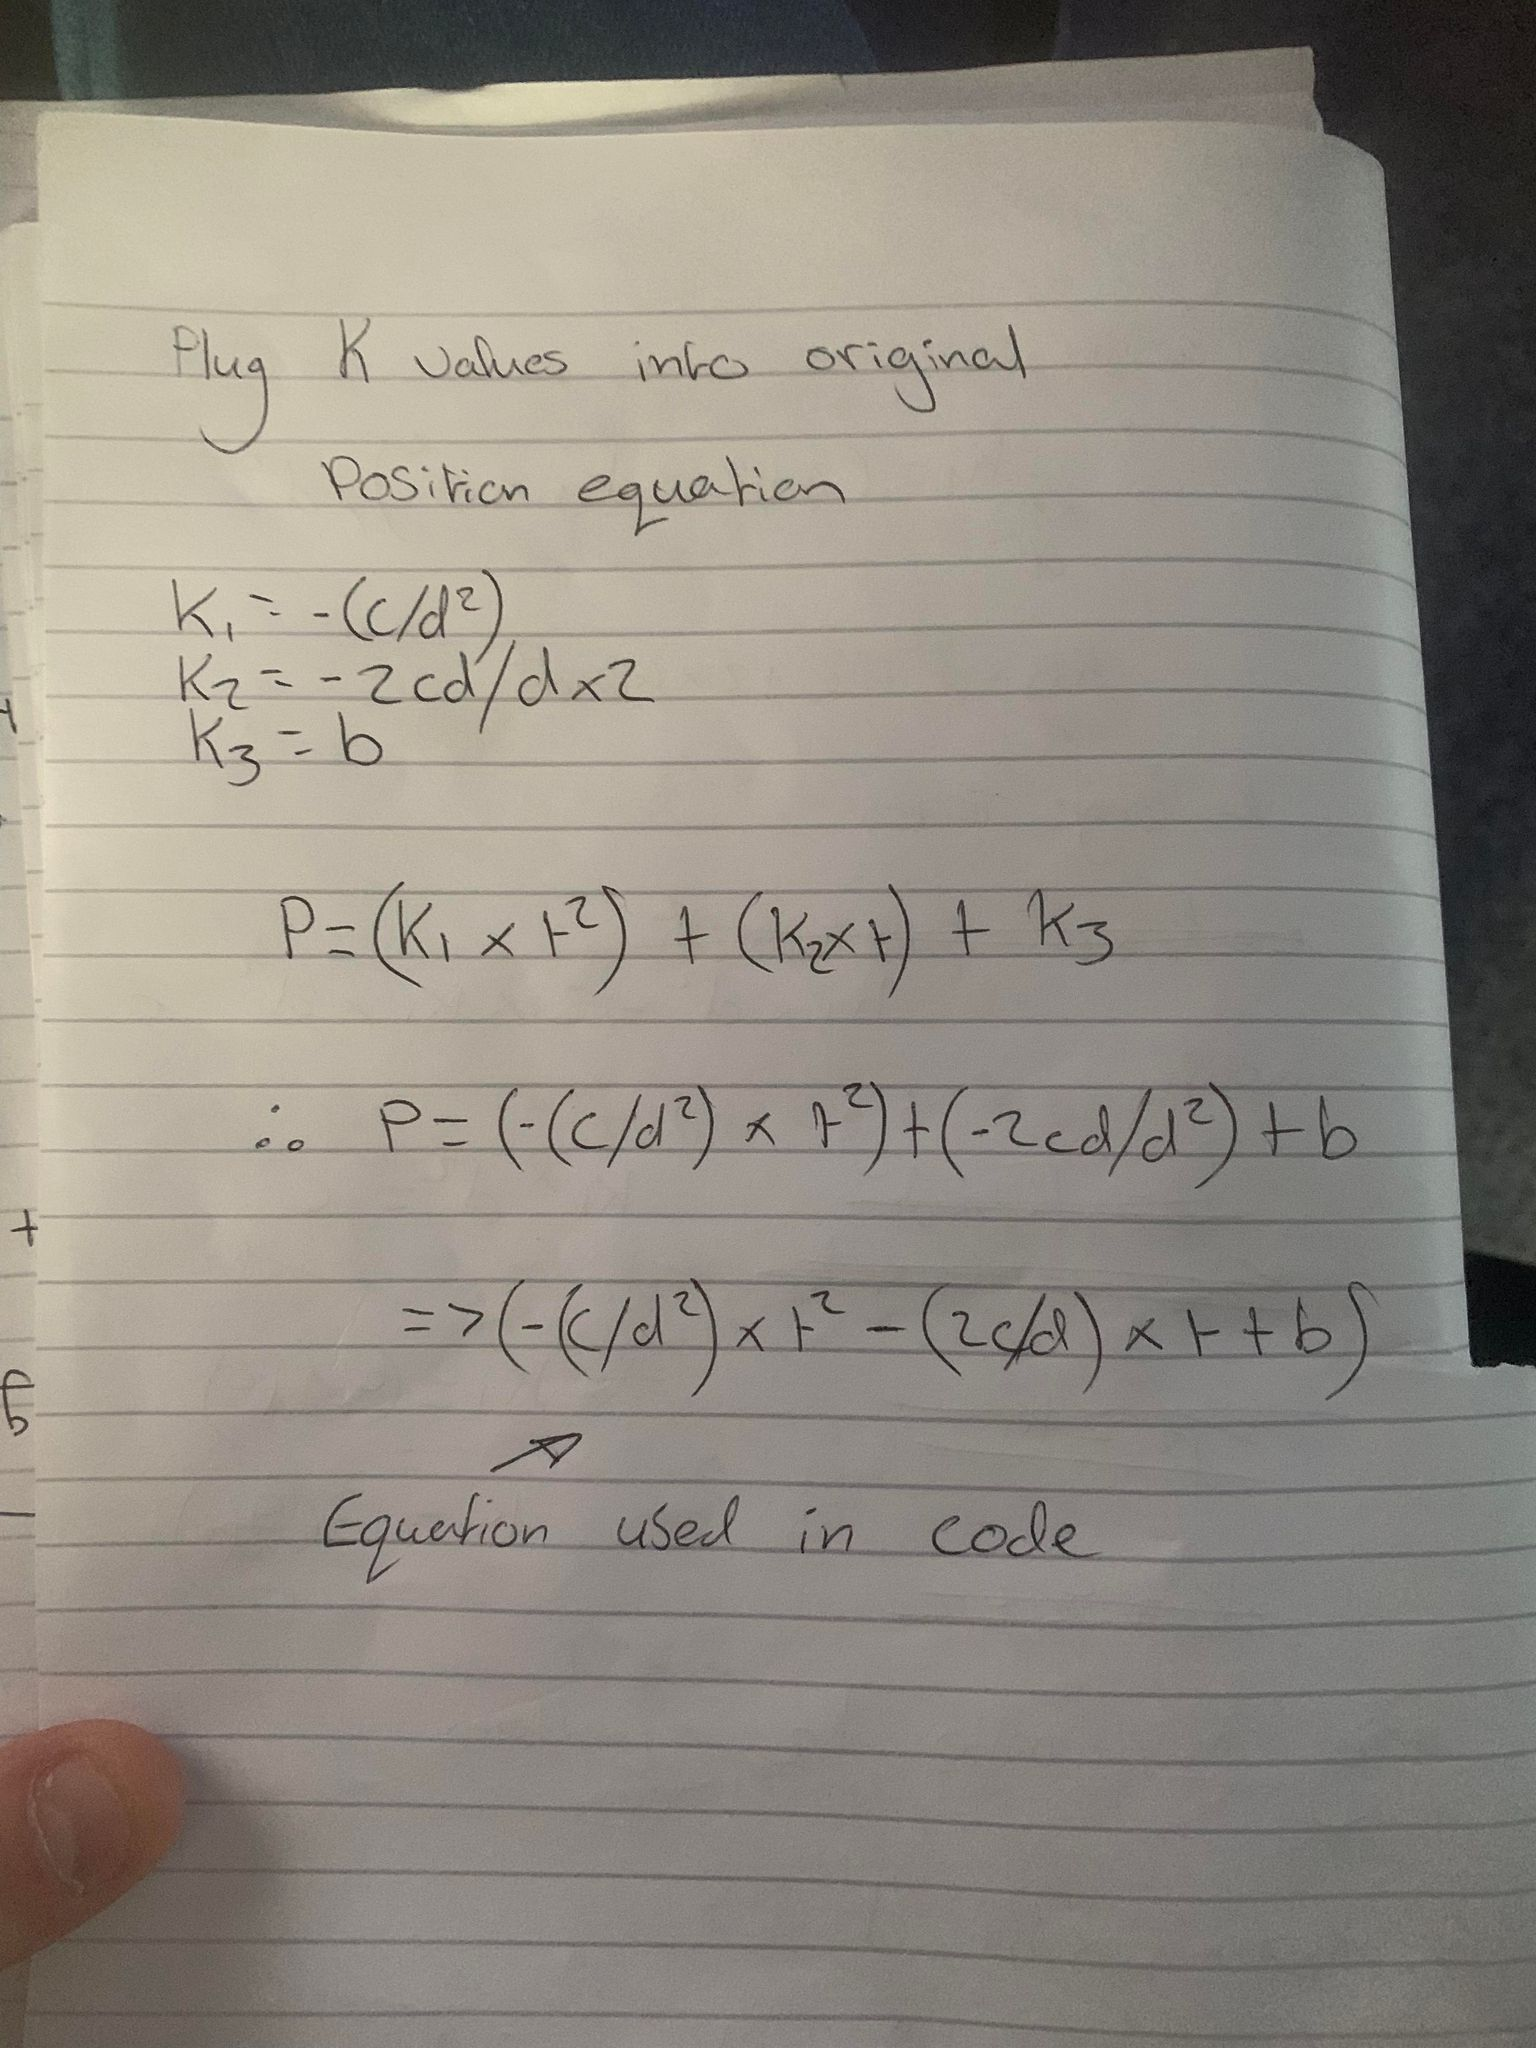 Plug K values into original
Position equation
K₁ = -(c/d²)
K₂ = -2cd/d×2
K₃ = b
P = (K₁ × t²) + (K₂×t) + K₃
∴ P = (-(c/d²) × t²) + (-2cd/d²) + b
=> (-(c/d²) × t² - (2c/d) × t + b)
Equation used in code